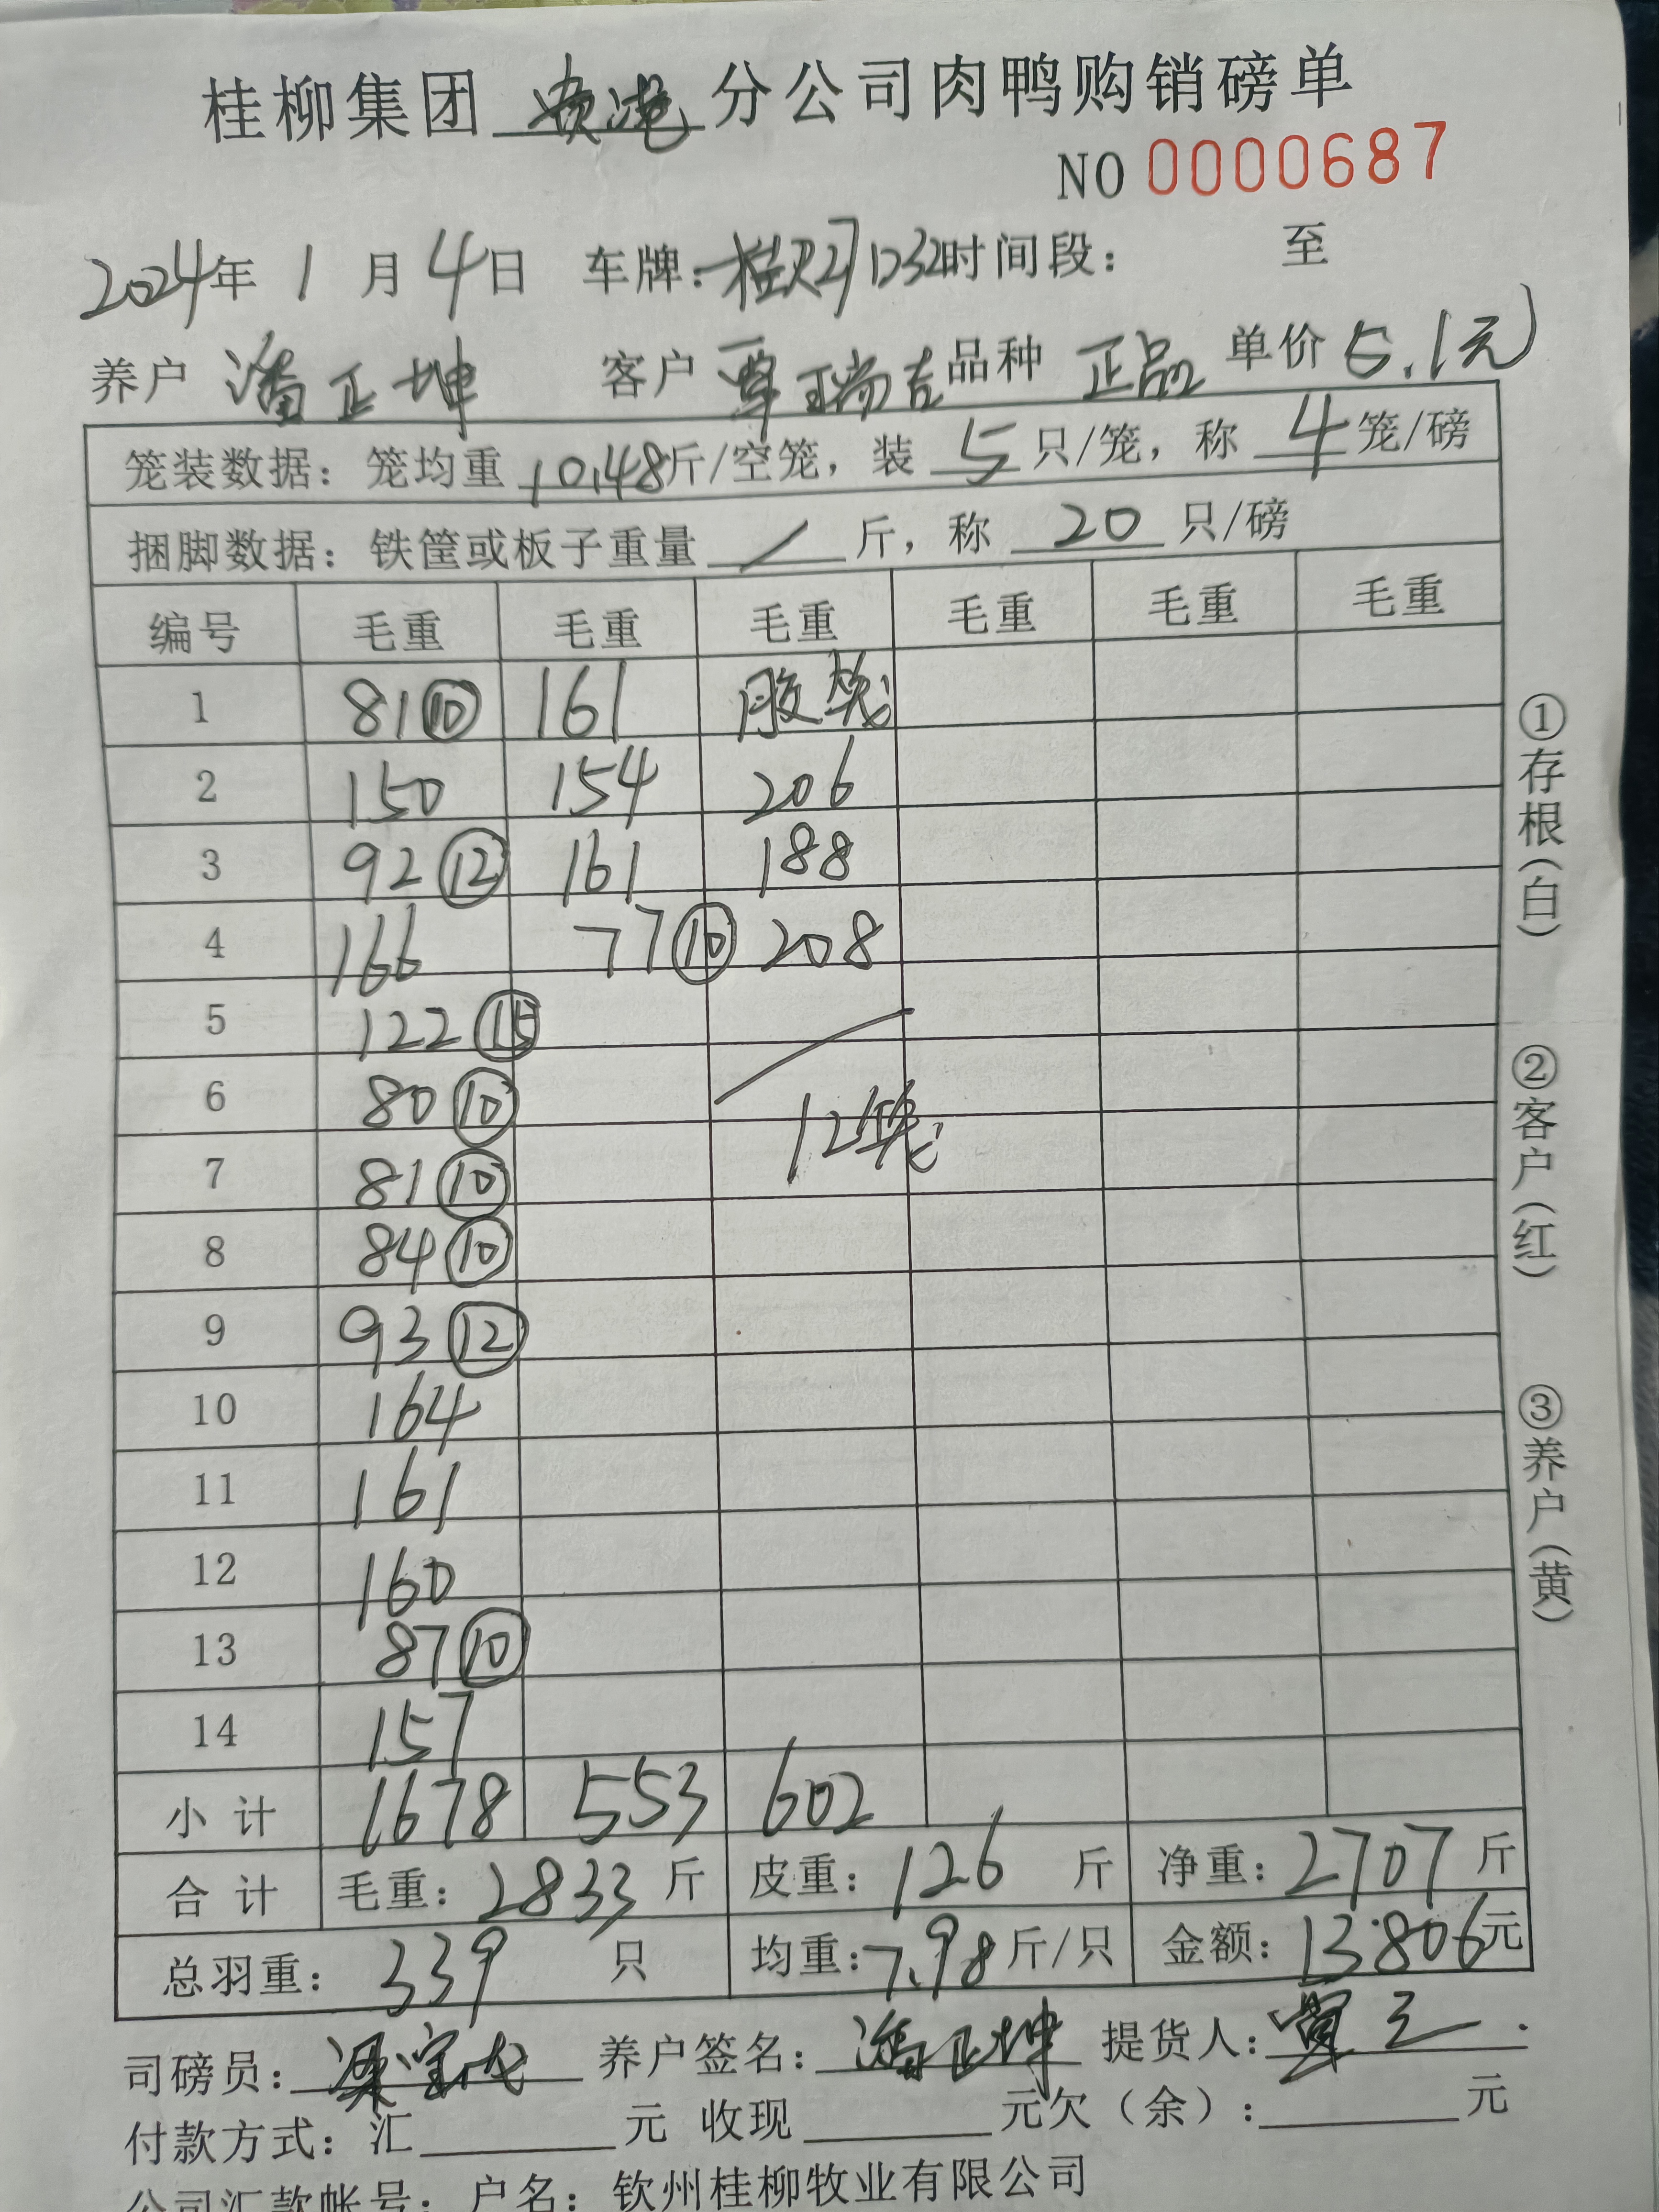 桂柳集团 贵港 分公司肉鸭购销磅单
NO 0000687
2024年 1 月 4 日 车牌: 时间段: 至
养户 潘正坤 客户 覃瑞吉 品种 正品 单价 5.1元
笼装数据: 笼均重 10.48 斤/空笼, 装 5 只/笼, 称 4 笼/磅
捆脚数据: 铁筐或板子重量 / 斤, 称 20 只/磅
编号 毛重 毛重 毛重 毛重 毛重 毛重
1 81⑩ 161 胶笼
2 150 154 206
3 92⑫ 161 188
4 166 77⑩ 208
5 122⑮
6 80⑩
7 81⑩ 12笼
8 84⑩
9 93⑫
10 164
11 161
12 160
13 87⑩
14 157
小计 1678 553 602
合计 毛重: 2833 斤 皮重: 126 斤 净重: 2707 斤
总羽重: 339 只 均重: 7.98 斤/只 金额: 13806元
司磅员: 养户签名: 潘正坤 提货人:
付款方式: 汇 元 收现 元欠(余): 元
公司汇款帐号: 户名: 钦州桂柳牧业有限公司
①存根(白)
②客户(红)
③养户(黄)